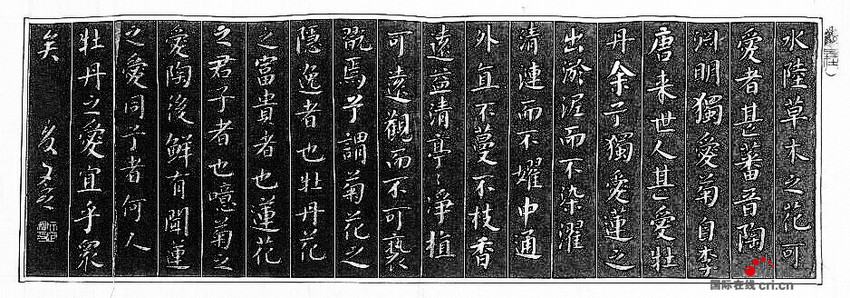 水陸草木之花可
愛者甚蕃晉陶
渊明獨愛菊自李
唐来世人甚愛牡
丹余予獨愛蓮之
出淤泥而不染濯
清漣而不中通
外直不蔓不枝香
遠益清亭〻淨植
可遠觀而不可褻
翫焉予謂菊花之
隱逸者也牡丹花
之富貴者也蓮花
之君子者也噫菊之
愛陶後鮮有聞蓮
之愛同予者何人
牡丹之愛宜乎眾
矣
国际在线 cri.cn